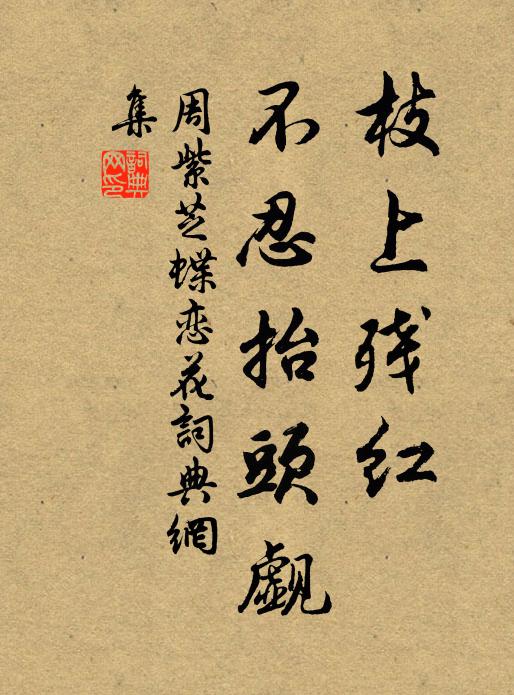 枝上残红
不忍抬頭觑
周紫芝蝶恋花詞典網
集
詞典
网印